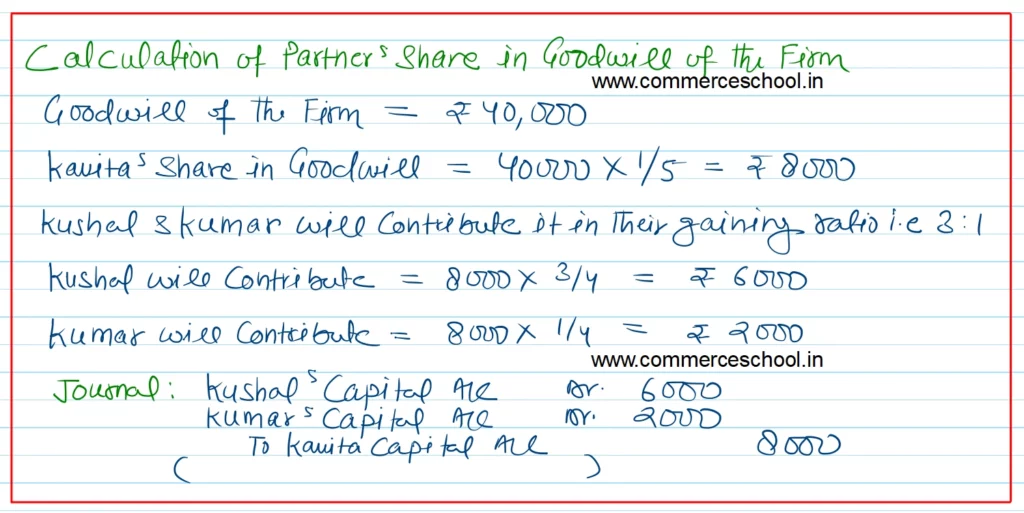 Calculation of Partner's Share in Goodwill of the Firm
www.commerceschool.in
Goodwill of the Firm = ₹ 40,000
Kavita's Share in Goodwill = 40000 × 1/5 = ₹ 8000
Kushal & Kumar will Contribute it in Their gaining ratio i.e 3:1
Kushal will Contribute = 8000 × 3/4 = ₹ 6000
Kumar will Contribute = 8000 × 1/4 = ₹ 2000
www.commerceschool.in
Journal: Kushal's Capital A/c Dr. 6000
Kumar's Capital A/c Dr. 2000
To Kavita Capital A/c 8000
( )